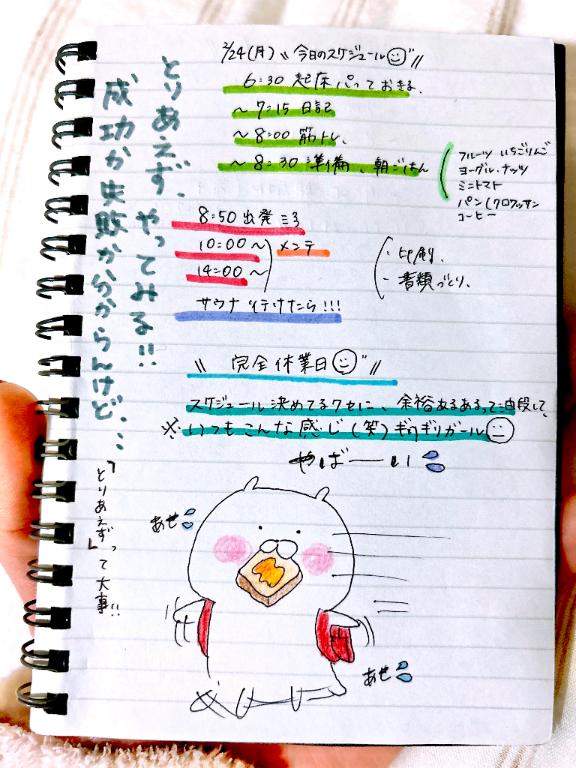 2/24(月) 〝今日のスケジュール〟
6:30 起床 パっておきる、
〜7:15 日記
〜8:00 筋トレ、
〜8:30 準備、朝ごはん
フルーツ いちごりんご
ヨーグル・ナッツ
ミニトマト
パン(クロワッサン
コーヒー
8:50 出発
10:00〜
14:00〜
メンテ
・印刷、
・書類づくり、
サウナ 行けたら!!!
〝完全休業日〟
スケジュール決めてるクセに、余裕あるあるって油段して、
※いつもこんな感じ(笑)ギリギリガール
やばーい
とりあえず、やってみる!!
成功か失敗か分からんけど...
「とりあえず」って大事!!
あせ
あせ